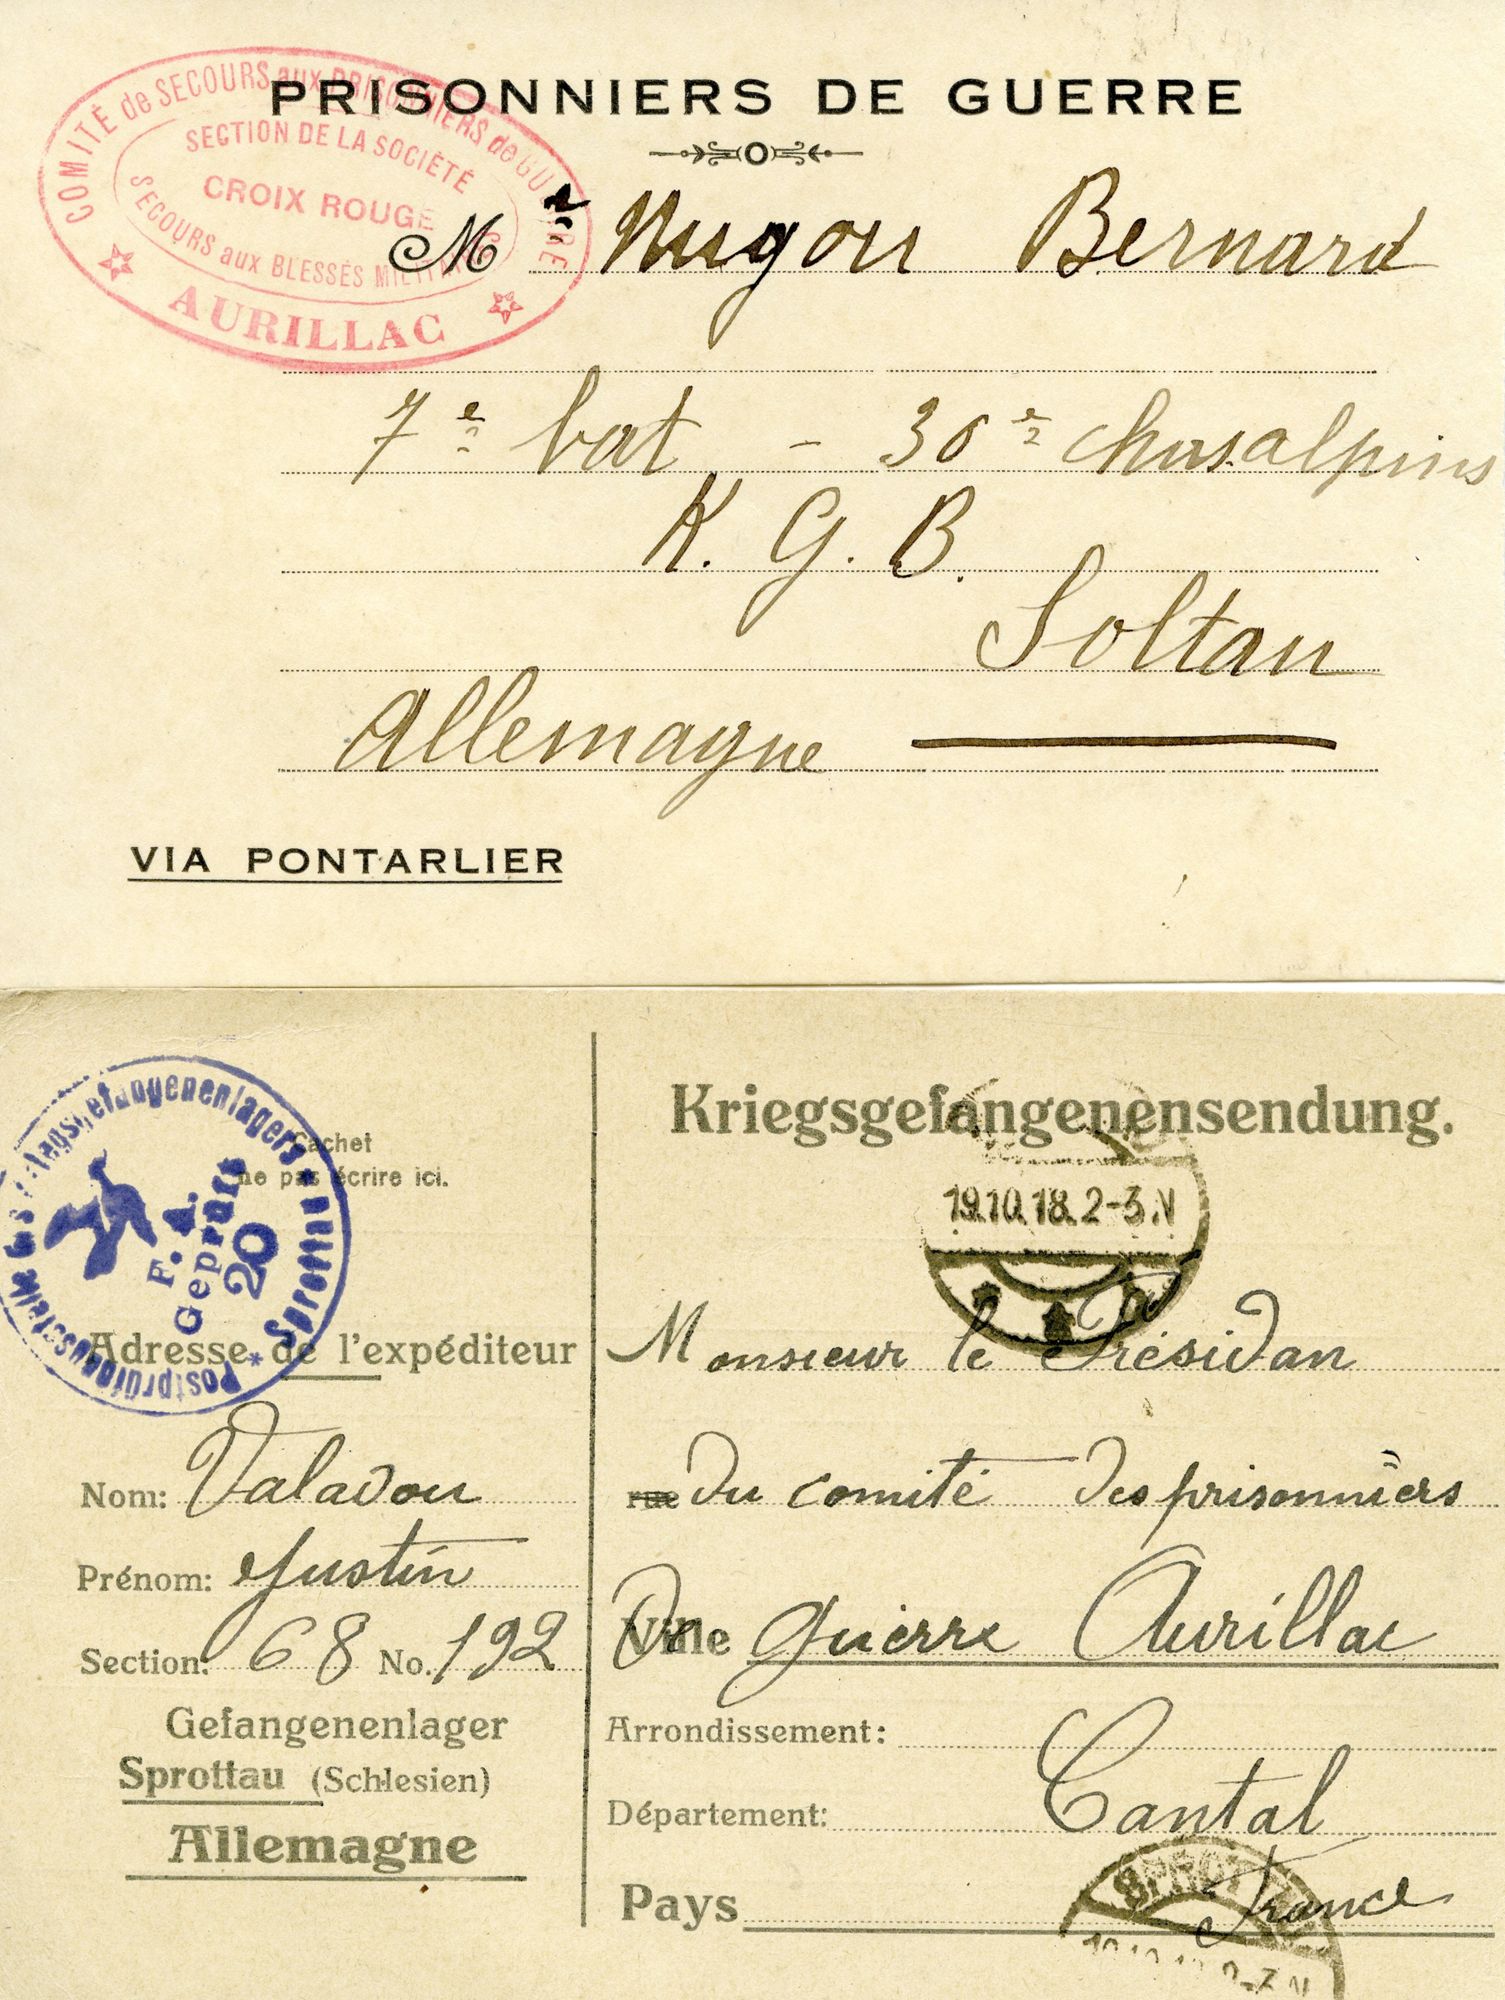 PRISONNIERS DE GUERRE
COMITÉ de SECOURS aux PRISONNIERS de GUERRE
SECTION DE LA SOCIÉTÉ
CROIX ROUGE
SECOURS aux BLESSÉS MILITAIRES
AURILLAC
Mr Nugou Bernard
7e bat - 36e chas. alpins
K. G. B.
Soltau
Allemagne
VIA PONTARLIER
Kriegsgefangenensendung.
Cachet
ne pas écrire ici.
Postprüfungsstelle des Kriegsgefangenenlagers * Sprottau *
F. A.
Geprüft
20
19.10.18. 2-3.N
Adresse de l'expéditeur
Nom: Valadou
Prénom: Justin
Section: 68 No. 192
Gefangenenlager
Sprottau (Schlesien)
Allemagne
Monsieur le Présidan
rue du comité des prisonnièrs
Ville De guierre Aurillac
Arrondissement:
Département: Cantal
Pays France
SPROTTAU